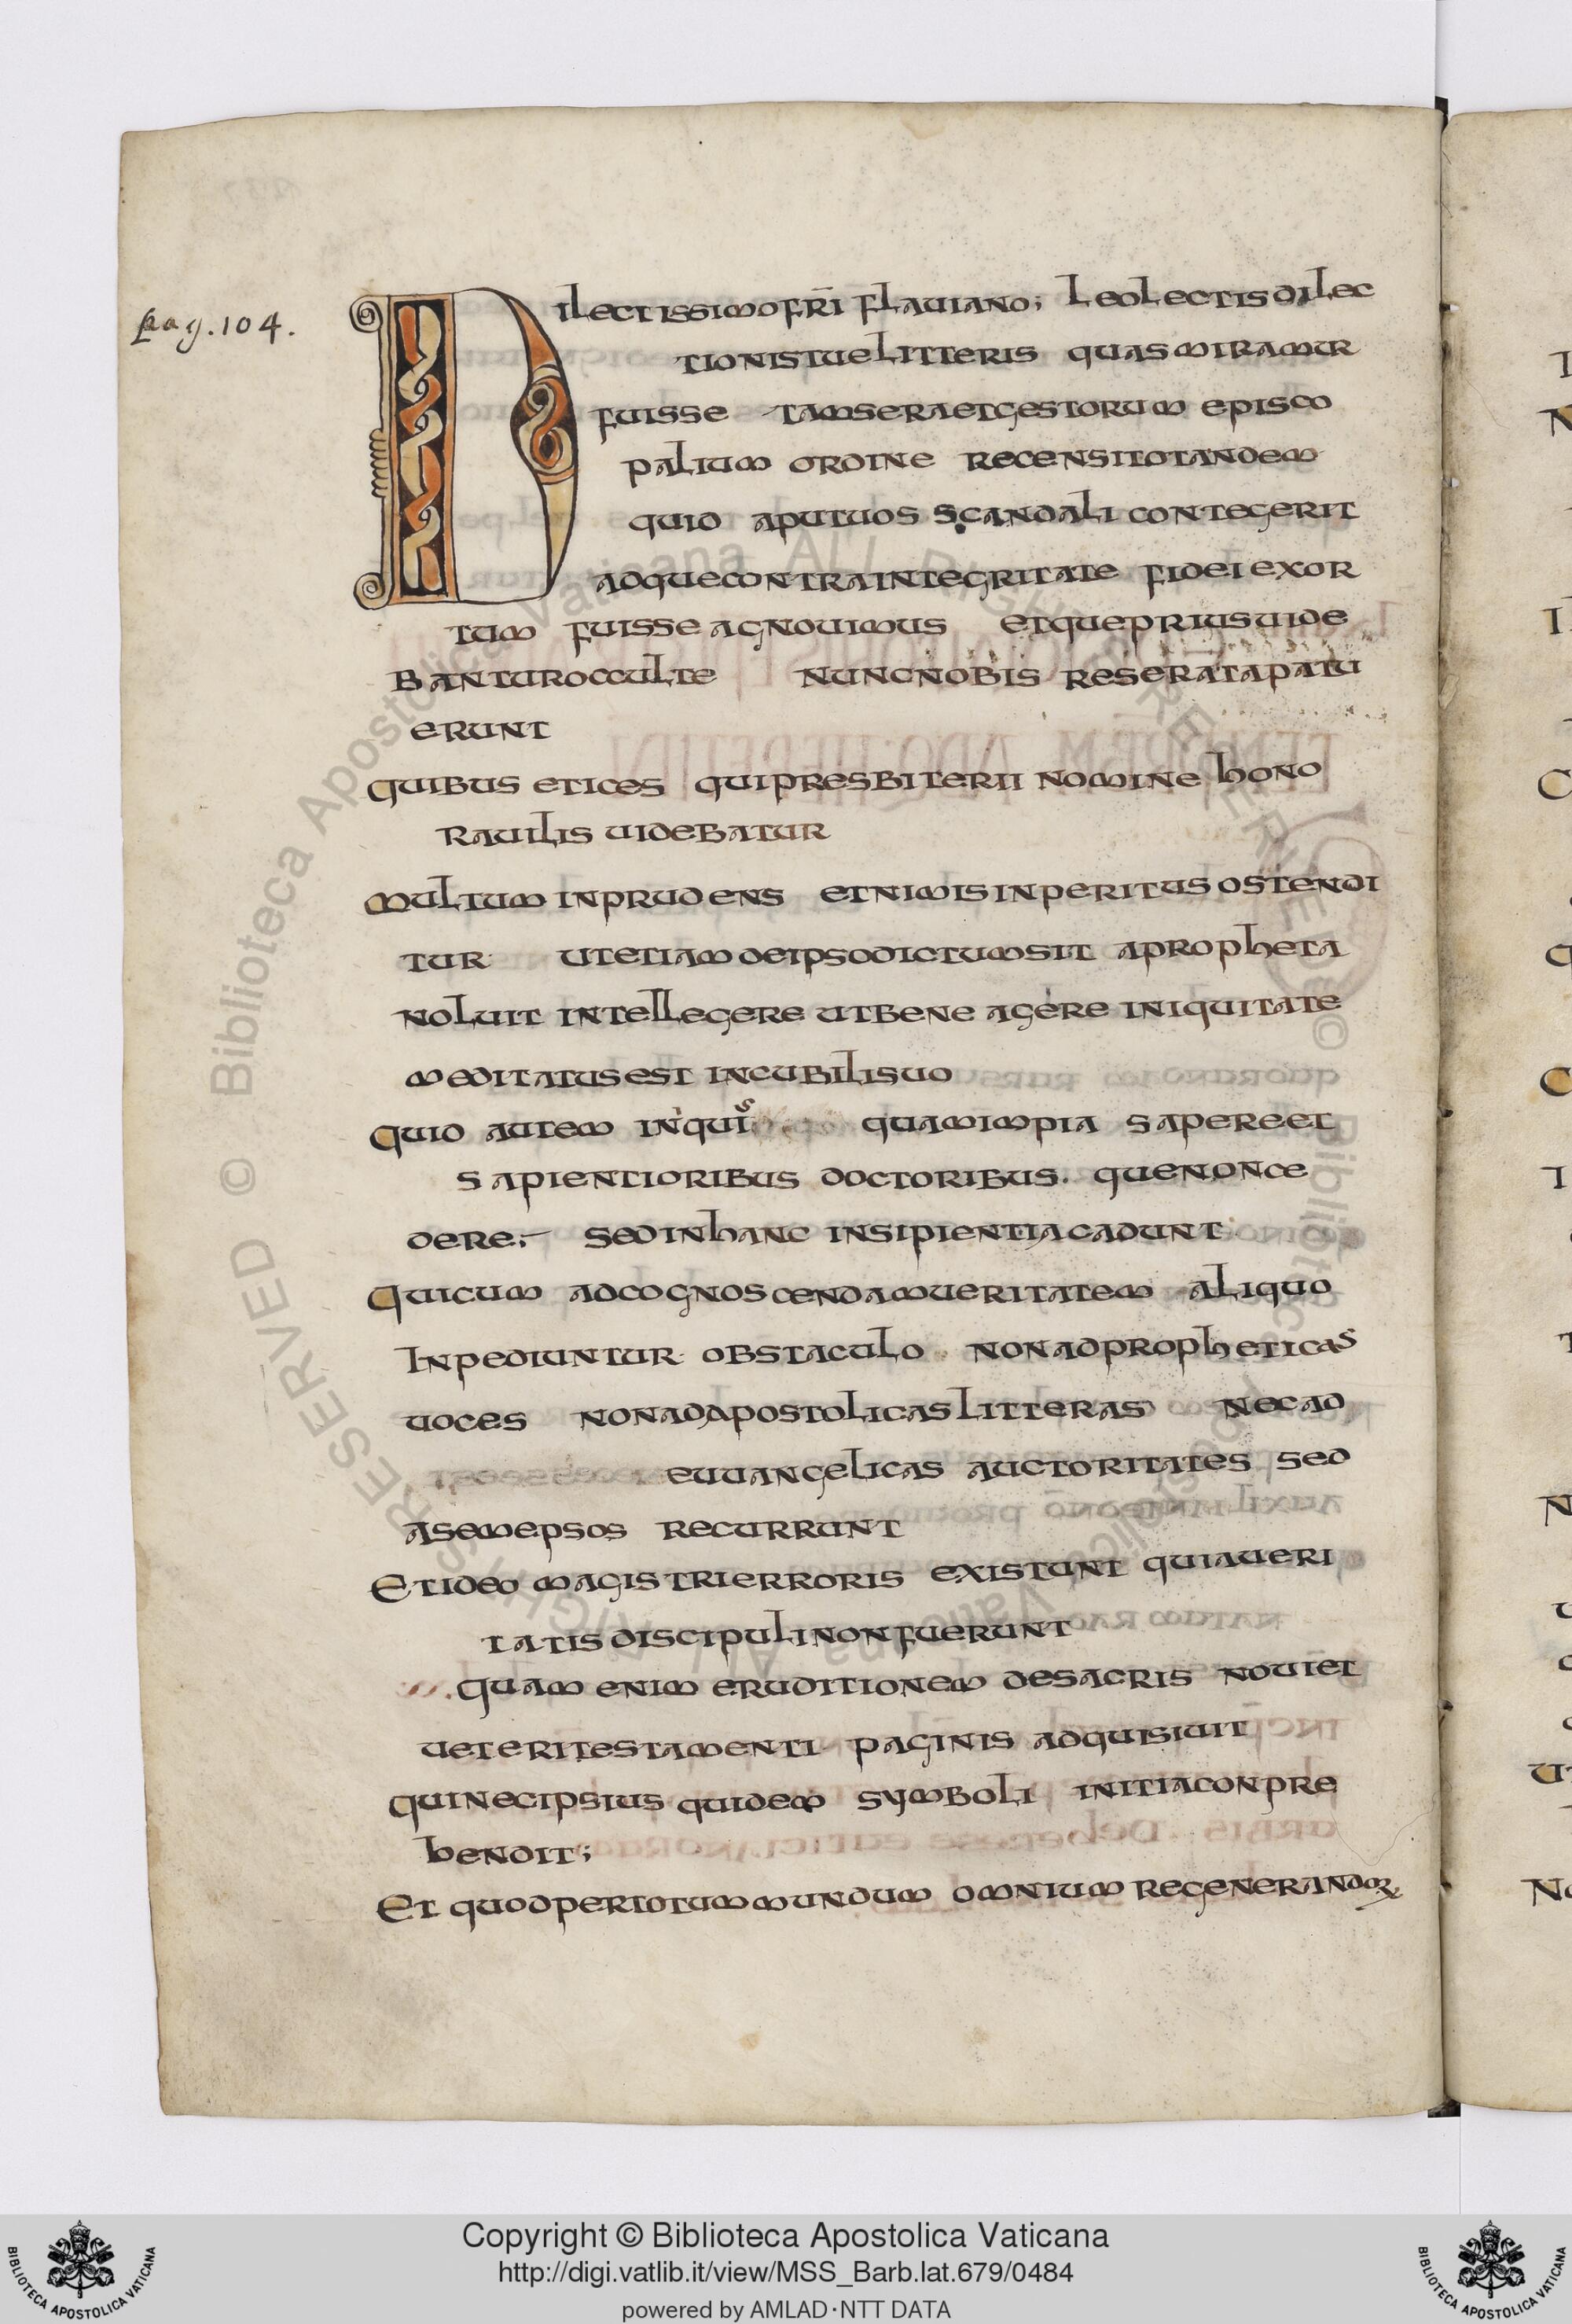 pag. 104.
Dilectissimo fr̄i flauiano; Leo Lectis dilec
tionis tue litteris quas miramur
fuisse tam sera et gestorum episco
palium ordine recensito tandem
quid aput uos scandali contegerit
adque contra integritate fidei exor
tum fuisse agnouimus et que prius uide
bantur occulte nunc nobis reserata patu
erunt
quibus etices qui presbiterii nomine hono
rauilis uidebatur
multum inprudens et nimis inperitus ostendi
tur ut etiam de ipso dictum sit a propheta
noluit intellegere ut bene agere iniquitate
meditatus est in cubili suo
Quid autem inquis quam impia sapere et
sapientioribus doctoribus. que non ce
dere; sed in hanc insipientia cadunt
Qui cum ad cognoscendam ueritatem aliquo
Inpediuntur obstaculo non ad propheticas
uoces non ad apostolicas litteras nec ad
euuangelicas auctoritates sed
a semepsos recurrunt
Et ideo magistri erroris existunt quia ueri
tatis discipuli non fuerunt
quam enim eruditionem de sacris noui et
ueteri testamenti paginis adquisiuit
qui nec ipsius quidem symboli initia conpre
hendit;
Et quod per totum mundum omnium regenerandoꝝ
Copyright © Biblioteca Apostolica Vaticana
http://digi.vatlib.it/view/MSS_Barb.lat.679/0484
powered by AMLAD·NTT DATA
BIBLIOTECA APOSTOLICA VATICANA
BIBLIOTECA APOSTOLICA VATICANA